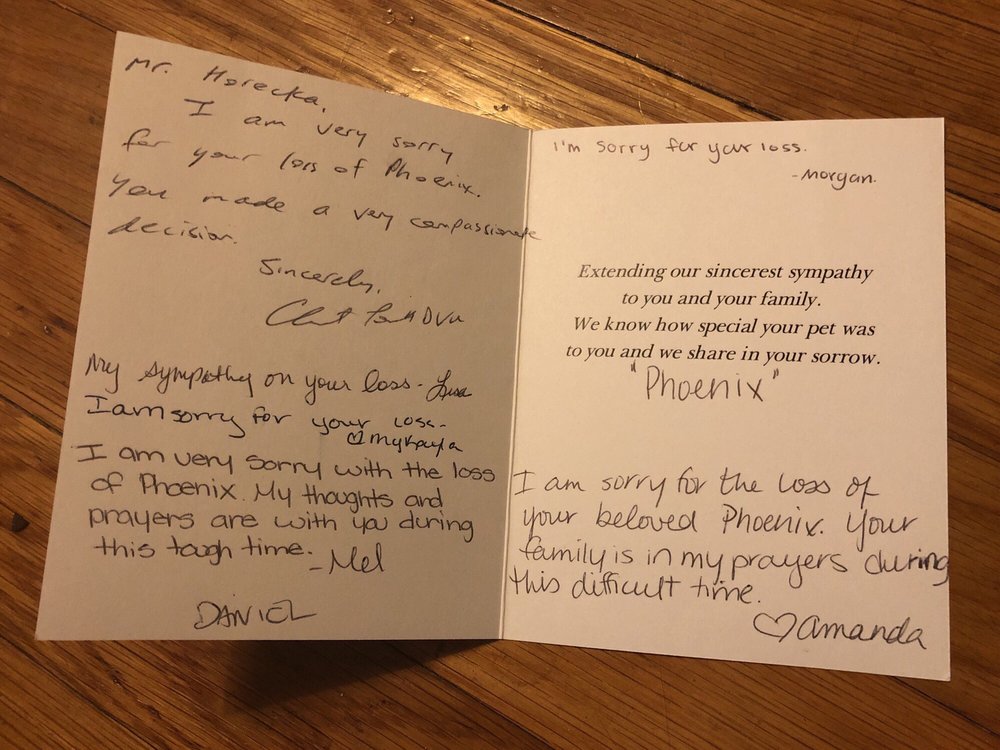 Mr. Horecka,
I am very sorry
for your loss of Phoenix.
You made a very compassionate
decision.
Sincerely,
DVM
My sympathy on your loss. Lisa
I am sorry for your loss.
♡ Mykayla
I am very sorry with the loss
of Phoenix. My thoughts and
prayers are with you during
this tough time.
-Mel
DANIEL
I'm sorry for your loss.
-Morgan.
Extending our sincerest sympathy
to you and your family.
We know how special your pet was
to you and we share in your sorrow.
"Phoenix"
I am sorry for the loss of
your beloved Phoenix. Your
family is in my prayers during
this difficult time.
♡ Amanda